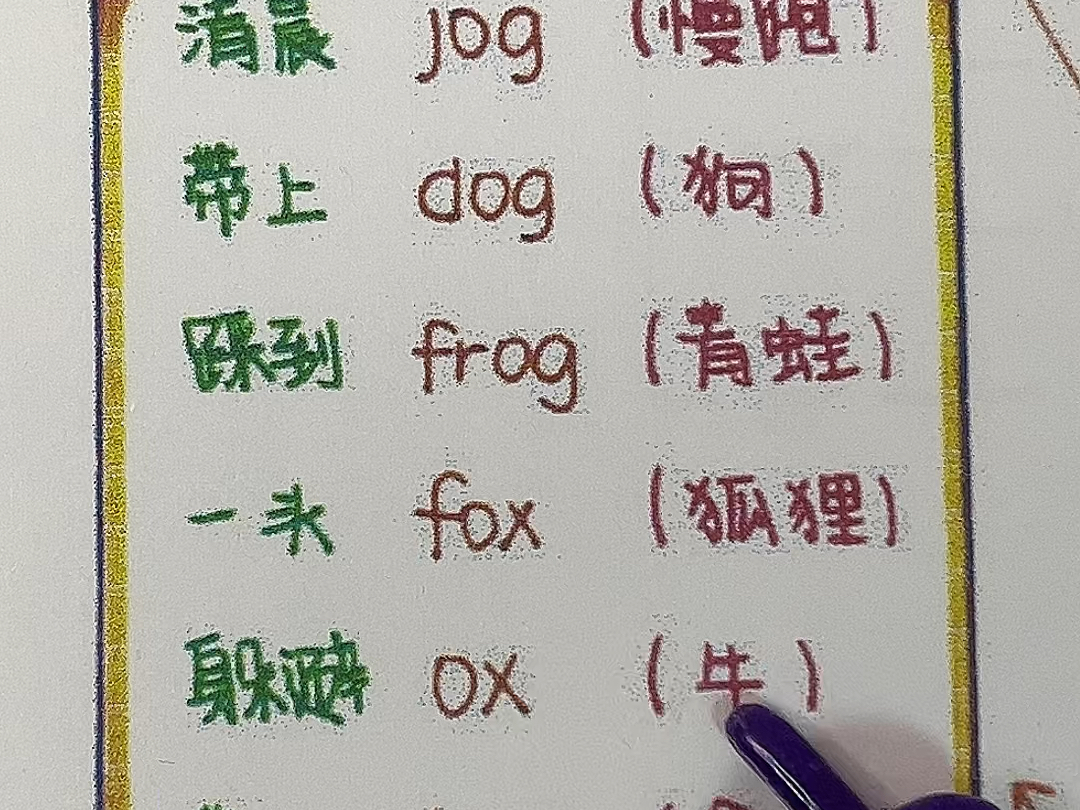 清晨 jog (慢跑)
带上 dog (狗)
踩到 frog (青蛙)
一头 fox (狐狸)
躲避 ox (牛)